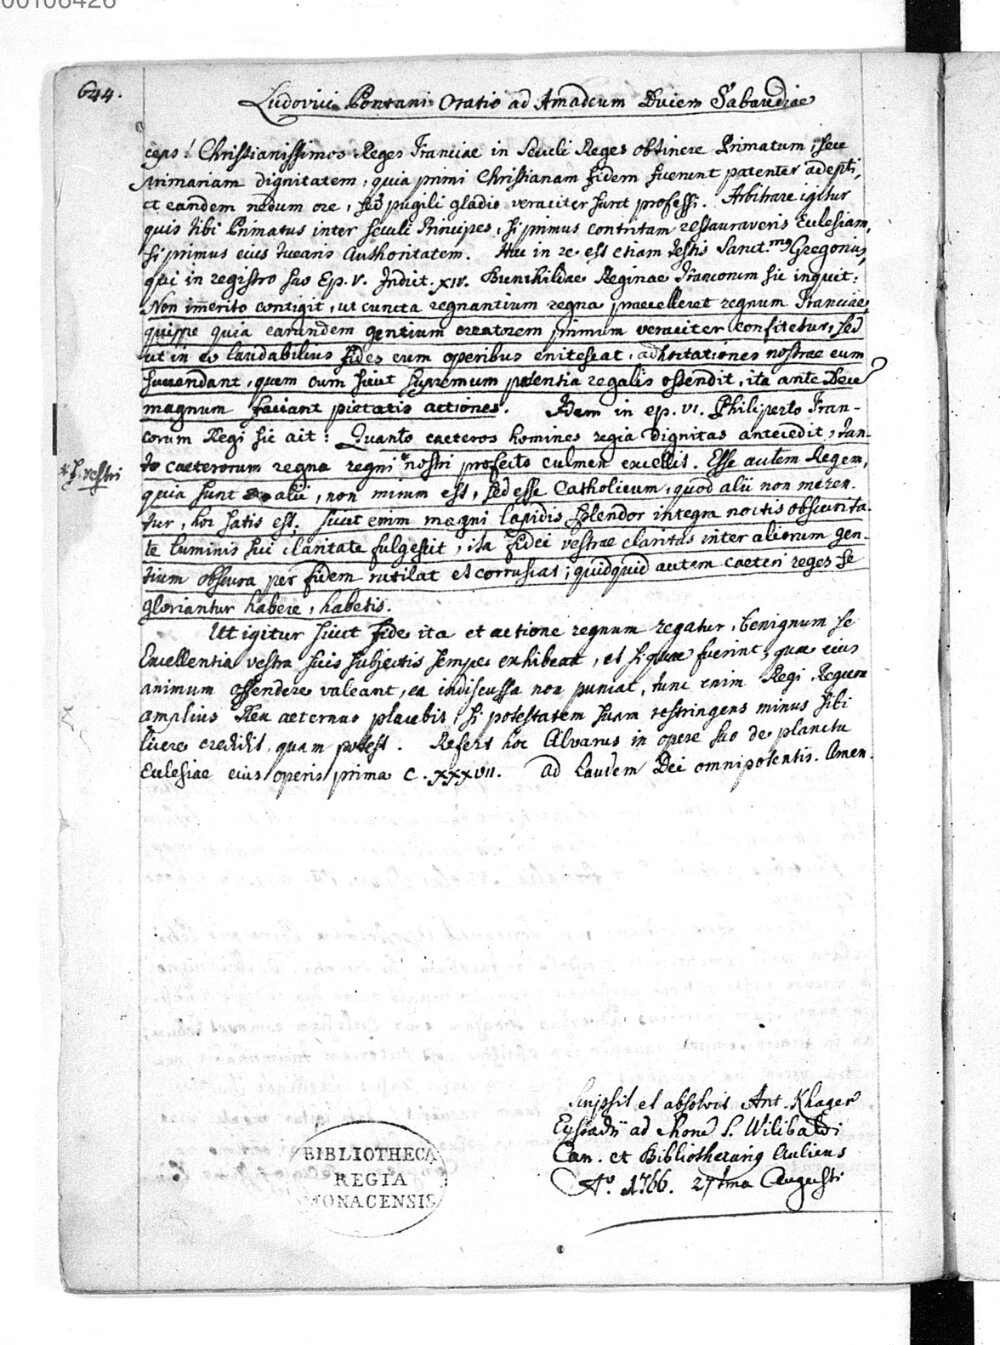 00106426
644.
Ludovici Pontani Oratio ad Amadeum Ducem Sabaudiae
ceps! Christianissimos Reges Franciae in Seculi Reges obtinere Primatum, seu
primariam dignitatem, quia primi Christianam fidem fuerunt patenter adepti,
et eandem nedum ore, sed pugili gladio veraciter sunt professi. Arbitrare igitur
quis tibi Primatus inter seculi Principes, si primus contritam restauraveris Ecclesiam,
si primus eius tuearis Authoritatem. Hac in re est etiam testis Sanct.mus Gregorius,
qui in registro suo Ep. V. Indict. XIV. Brunihildae Reginae Francorum sic inquit:
Non immerito contigit, ut cuncta regnantium regna praecelleret regnum Franciae
quippe quia earundem gentium creatorem primum veraciter confitetur, sed
ut in eo laudabilius fides cum operibus enitescat, adhortationes nostrae eum
succendant, quem cum sicut supremum potentia regalis ostendit, ita ante Deum
magnum faciant pietatis actiones. Idem in ep. VI. Philiperto Fran-
corum Regi sic ait: Quanto caeteros homines regia dignitas antecedit, tan-
to caeterorum regna regni * nostri profecto culmen excellit. Esse autem Regem,
* f. vestri
quia sunt alii, non mirum est, sed esse Catholicum, quod alii non meren-
tur, hoc satis est. Sicut enim magni lapidis splendor integra noctis obscurita-
te luminis sui claritate fulgescit, ita fidei vestrae claritas inter aliorum gen-
tium obscura per fidem rutilat et corruscat; quidquid autem caeteri reges se
gloriantur habere, habetis.
Ut igitur sicut fide ita et actione regnum regatur, benignum se
Excellentia vestra suis subjectis semper exhibeat, et si quae fuerint, quae eius
animum offendere valeant, ea indiscussa non puniat, tunc enim Regi Regum
amplius Rex aeternus placebis, si potestatem suam restringens minus sibi
licere credidit, quam potest. Refert hoc Alvarus in opere suo de planctu
Ecclesiae eius operis prima C. XXXVII. Ad Laudem Dei omnipotentis. Amen.
Scripsit et absolvit Ant. Khager
Eystadii ad Chorum S. Wilibaldi
Can. et Bibliothecarius Aulicus
Ao. 1766. 27tma Augusti
BIBLIOTHECA
REGIA
MONACENSIS